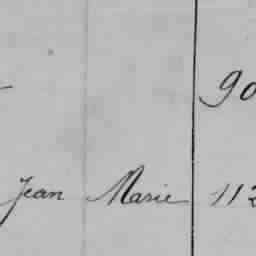 90
Jean Marie 112